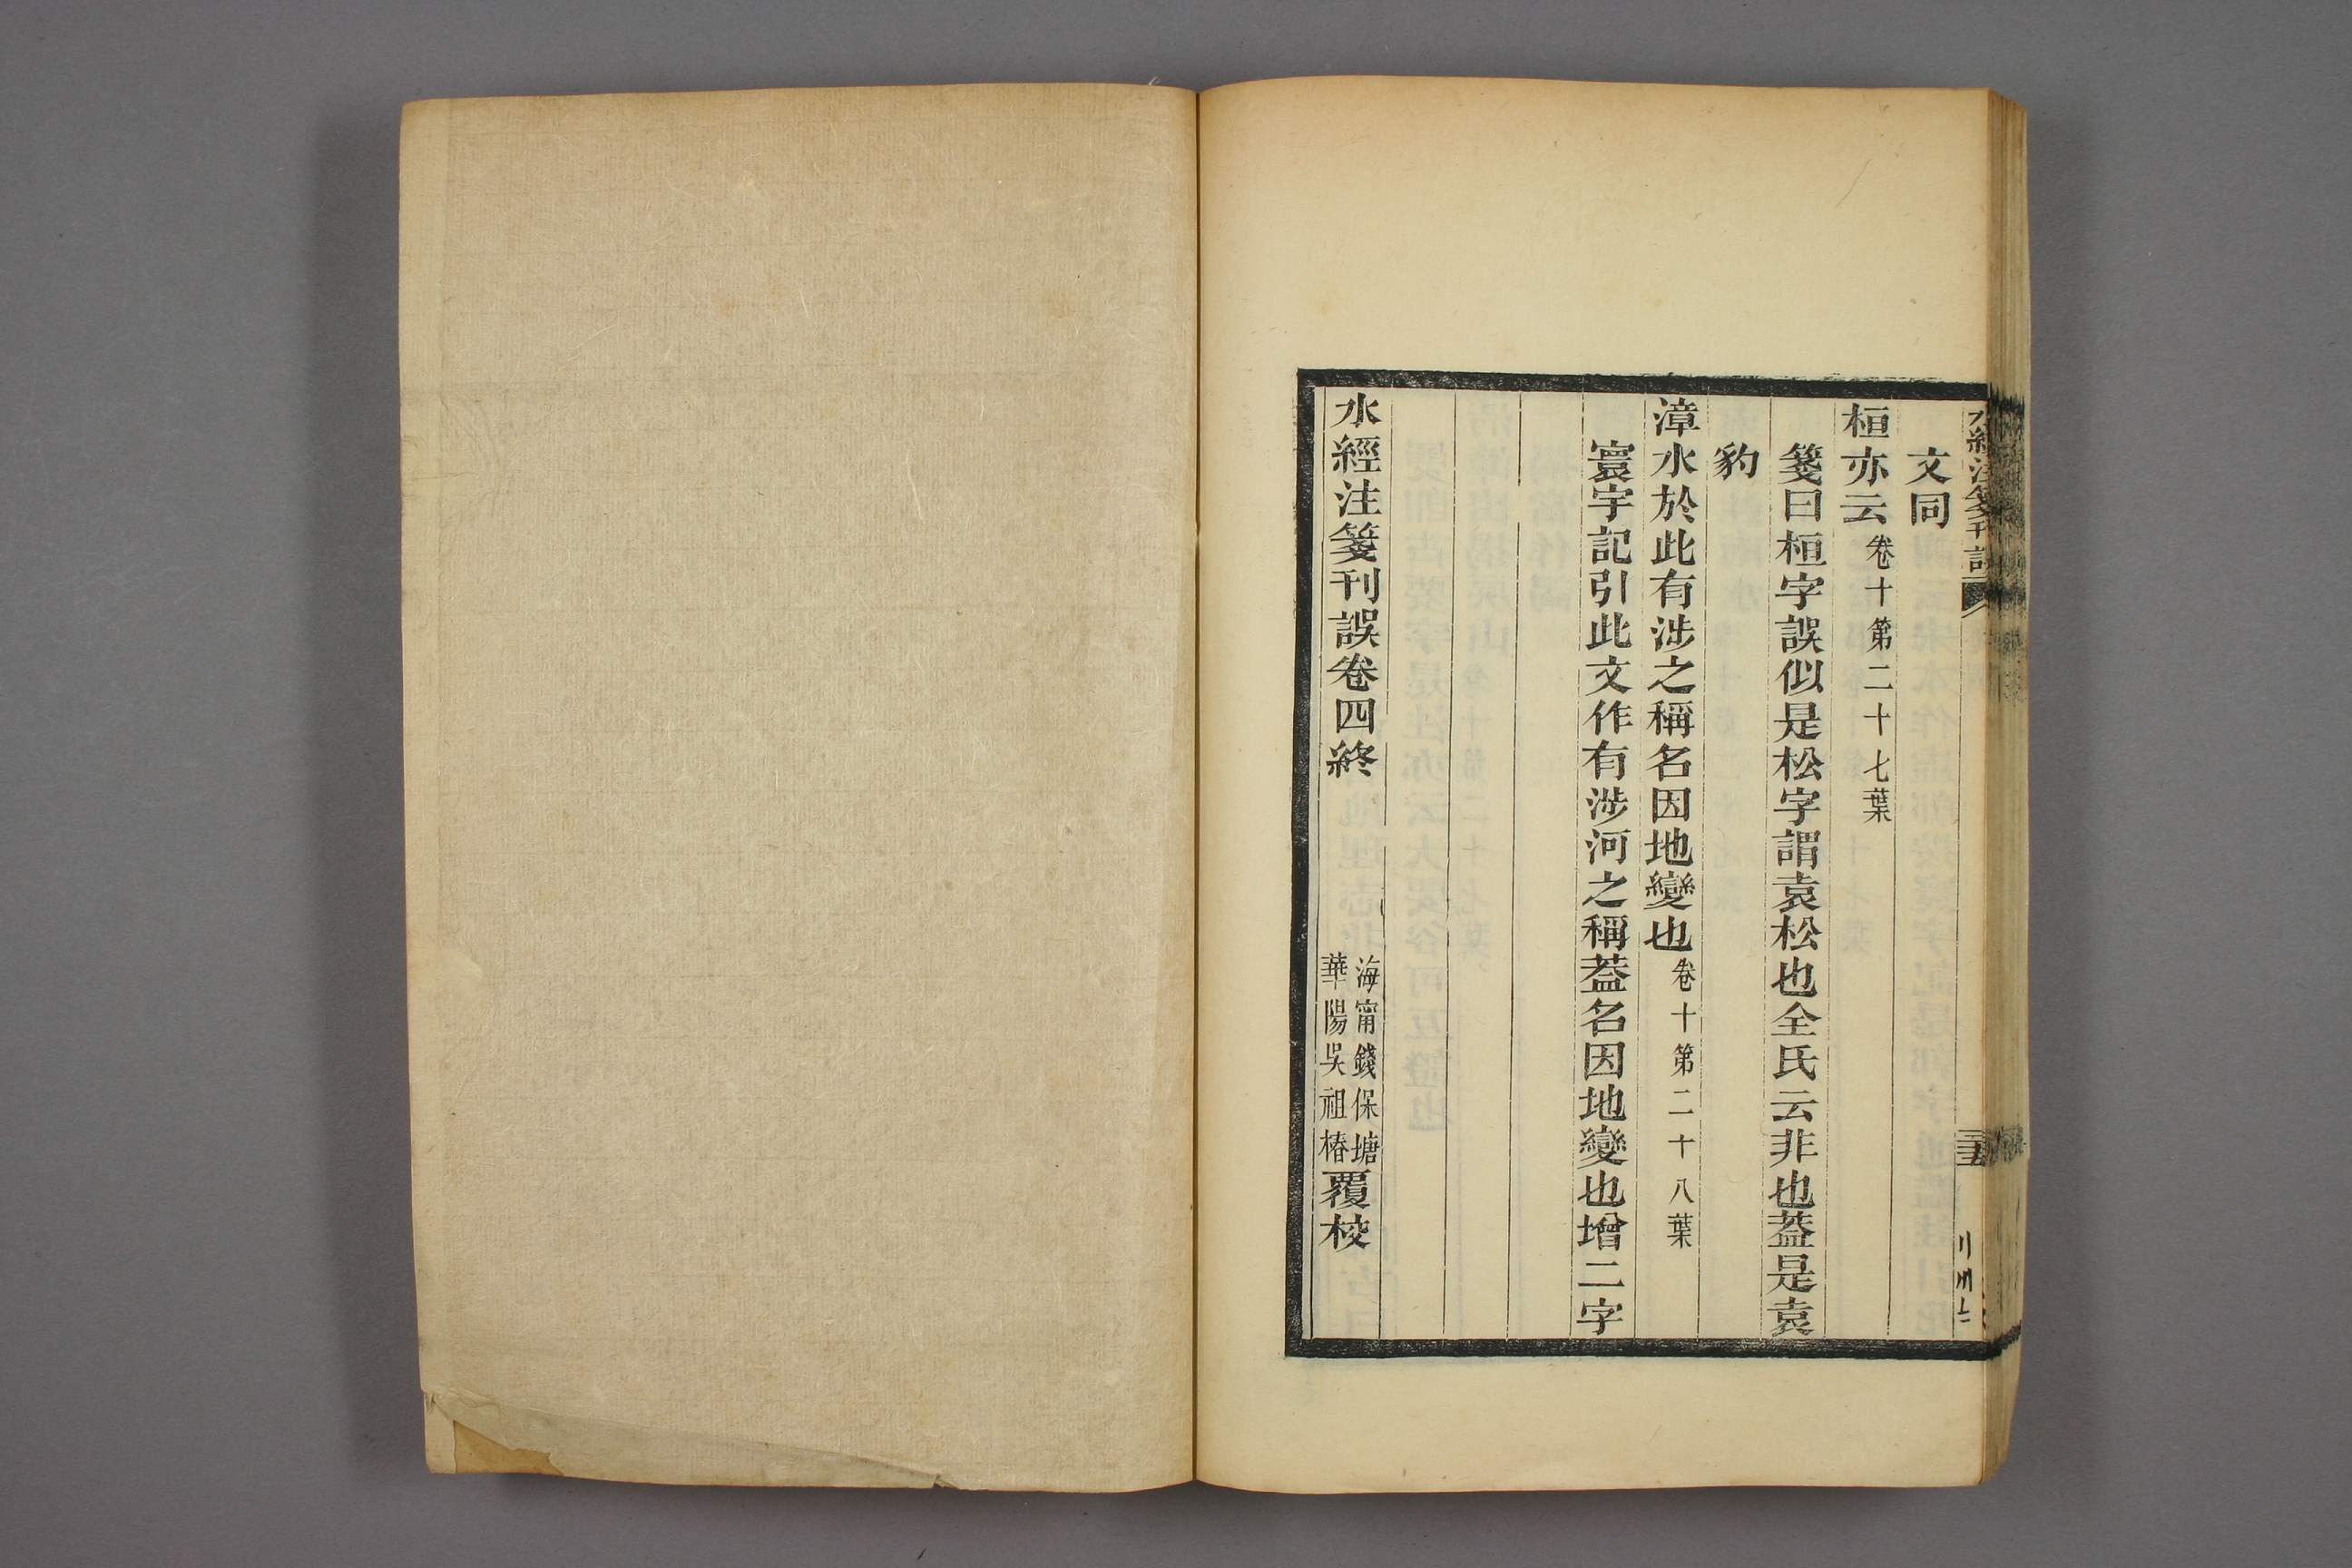 水經注箋刊誤
文同
桓亦云卷十第二十七葉
箋曰桓字誤似是松字謂袁松也全氏云非也葢是袁
豹
漳水於此有涉之稱名因地變也卷十第二十八葉
寰宇記引此文作有涉河之稱葢名因地變也增二字
水經注箋刊誤卷四終
海甯錢保塘
華陽吳祖椿
覆校